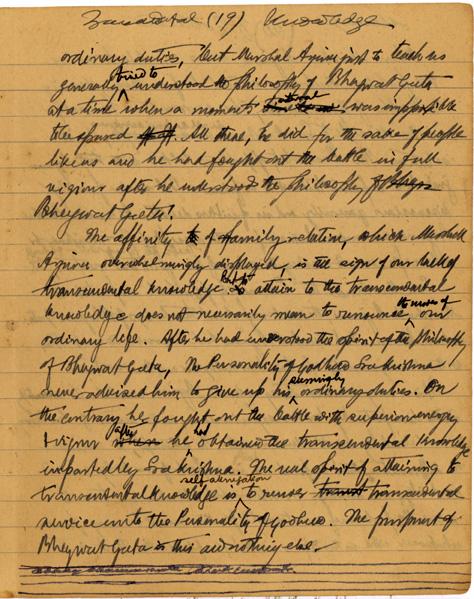 Transcendental (19) Knowledge
ordinary duties, but Marshal Arjuna just to teach us
generally tried to understood the philosophy of Bhagwat Geeta
at a time when a moment's interval was impossible
to be spared. All these, he did for the sake of people
like us and he had fought out the battle in full
vigour after he understood the philosophy of
Bhagwat Geeta!
The affinity of family relation, which Marshall
Arjuna overwhelmingly displayed, is the sign of our lack of
transcendental knowledge but to attain to the transcendental
knowledge does not necessarily mean to renounce the modes of our
ordinary life. After he had understood the spirit of the philosophy
of Bhagwat Geeta, The Personality of Godhead Sree Krishna
never advised him to give up his seemingly ordinary duties. On
the contrary he fought out the battle with superior energy
& vigour after he had obtained the transcendental knowledge
imparted by Sree Krishna. The real spirit of attaining to
transcendental knowledge is self abnegation to render transcendental
service unto the Personality of Godhead. The purport of
Bhagwat Geeta is this and nothing else.